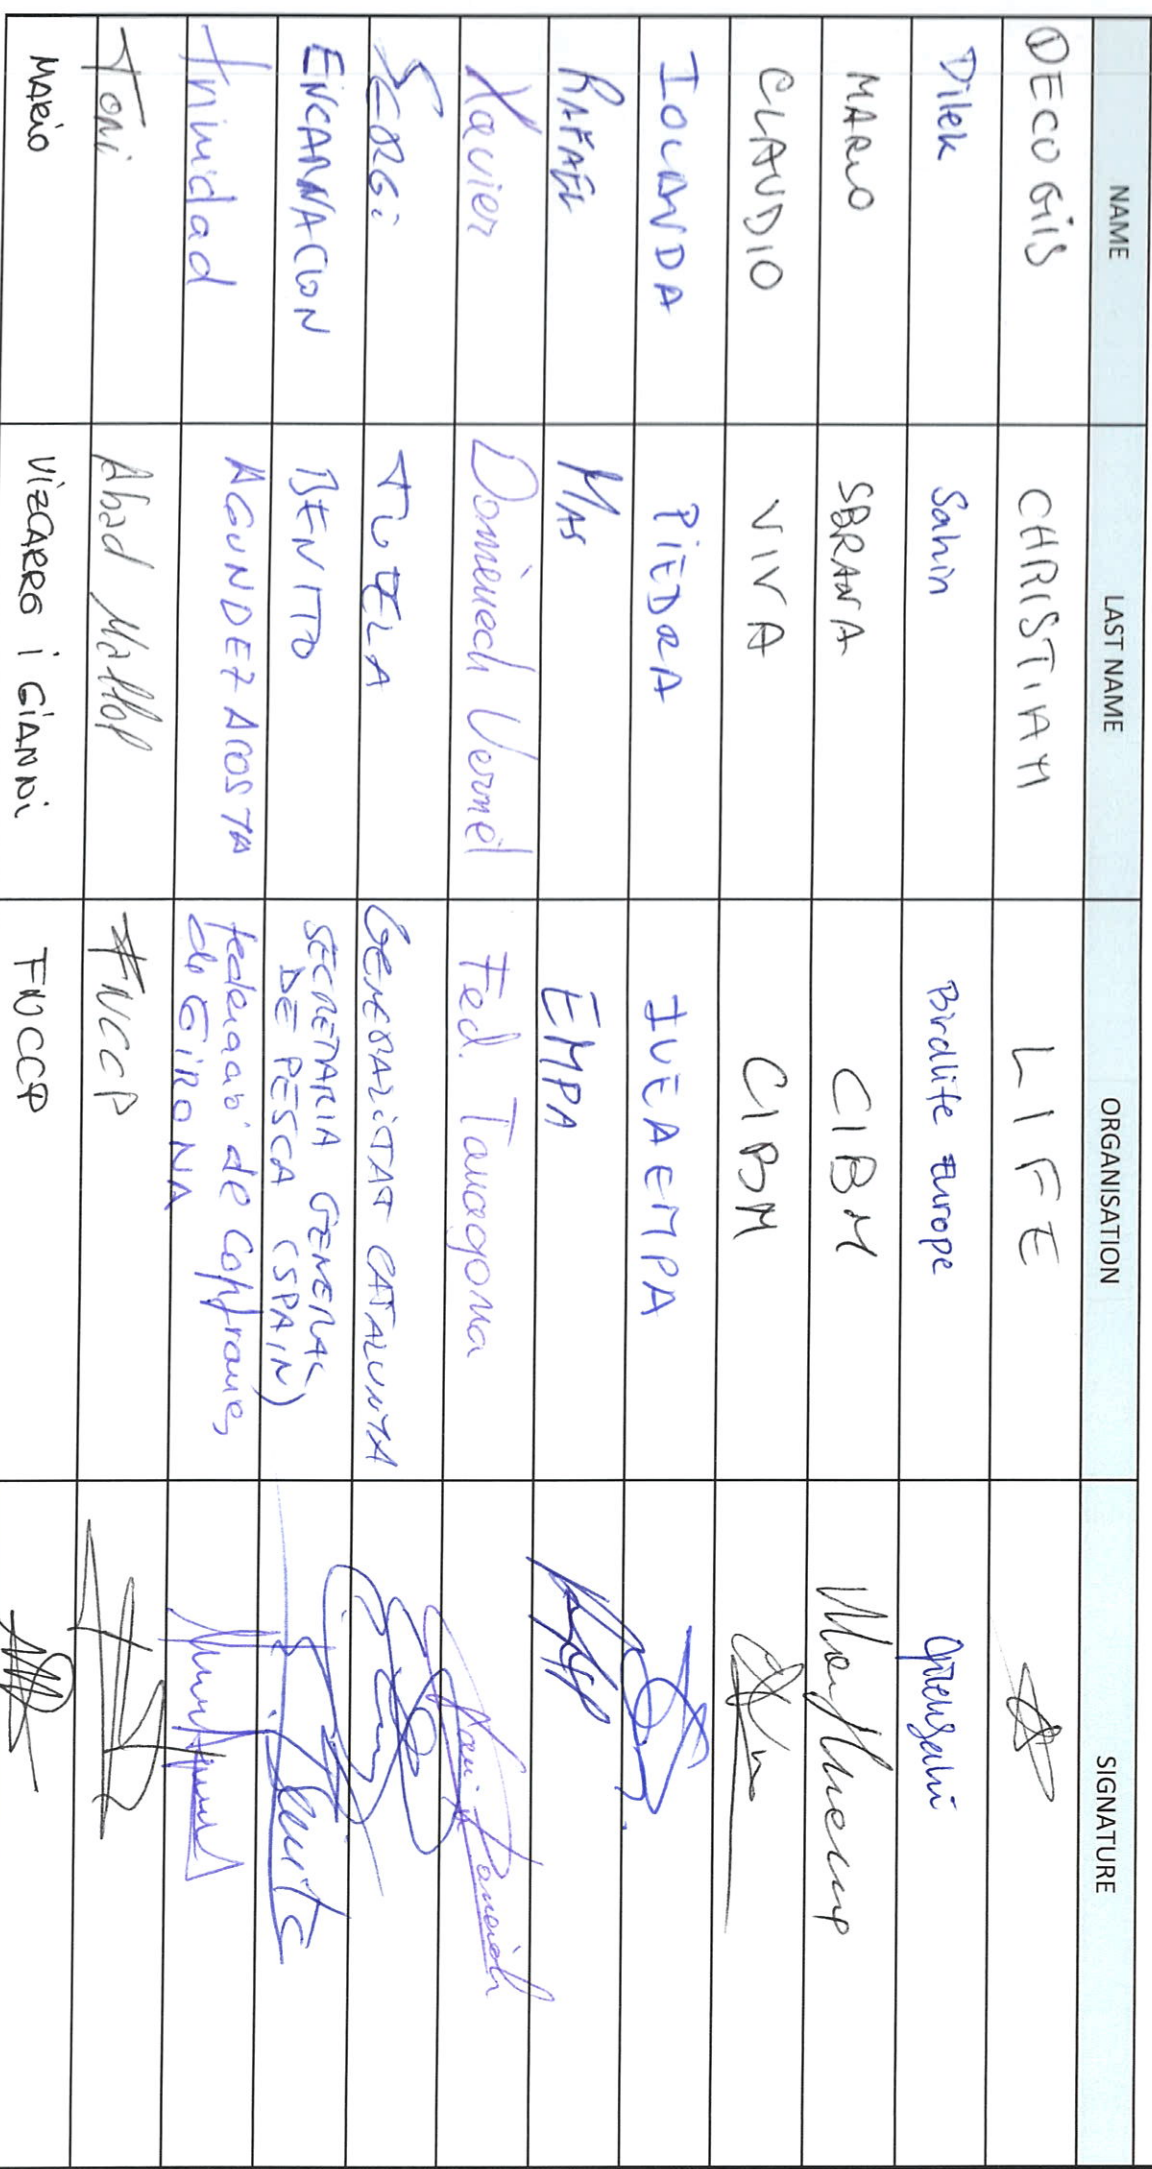 NAME LAST NAME ORGANISATION SIGNATURE
DECOGIIS CHRISTIAN LIFE
Dilek Sahin Birdlife Europe
MARIO SBRANA CIBM
CLAUDIO VIVA CIBM
IOLANDA PIEDRA IVEAEMPA
RAFAEL MAS EMPA
Xavier Domènech Vernet Fed. Tarragona
SERGI TUDELA GENERALITAT CATALUNYA
ENCARNACION BENITO SECRETARIA GENERAL
DE PESCA (SPAIN)
Trinidad AGUNDEZ ACOSTA federació de Confraries
de GIRONA
Toni Abad Mallol FNCCP
MARIO VIZCARRO i GIANNI FNCCP